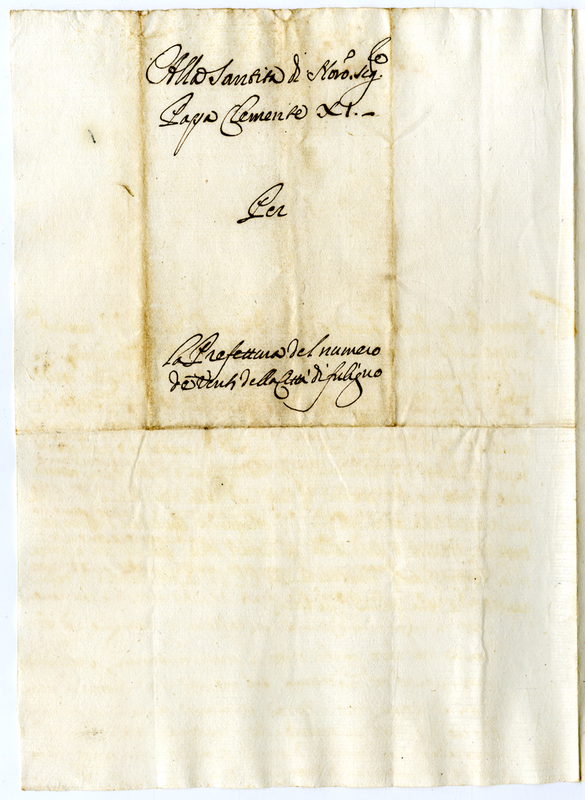 Alla Santità di Nrõ. Sig.re
Papa Clemente XI. -
Per
la Prefettura del numero
de Venti della Città di fuligno